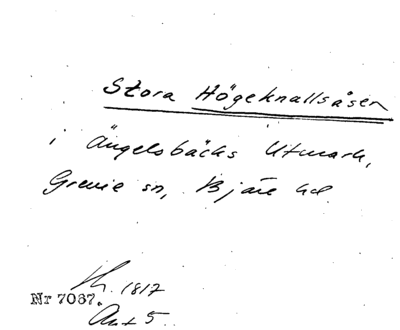 Stora Högeknallsåsen
i Ängelsbäcks Utmark,
Grevie sn, Bjäre hd.
1817
Nr 7067.
Akt 5